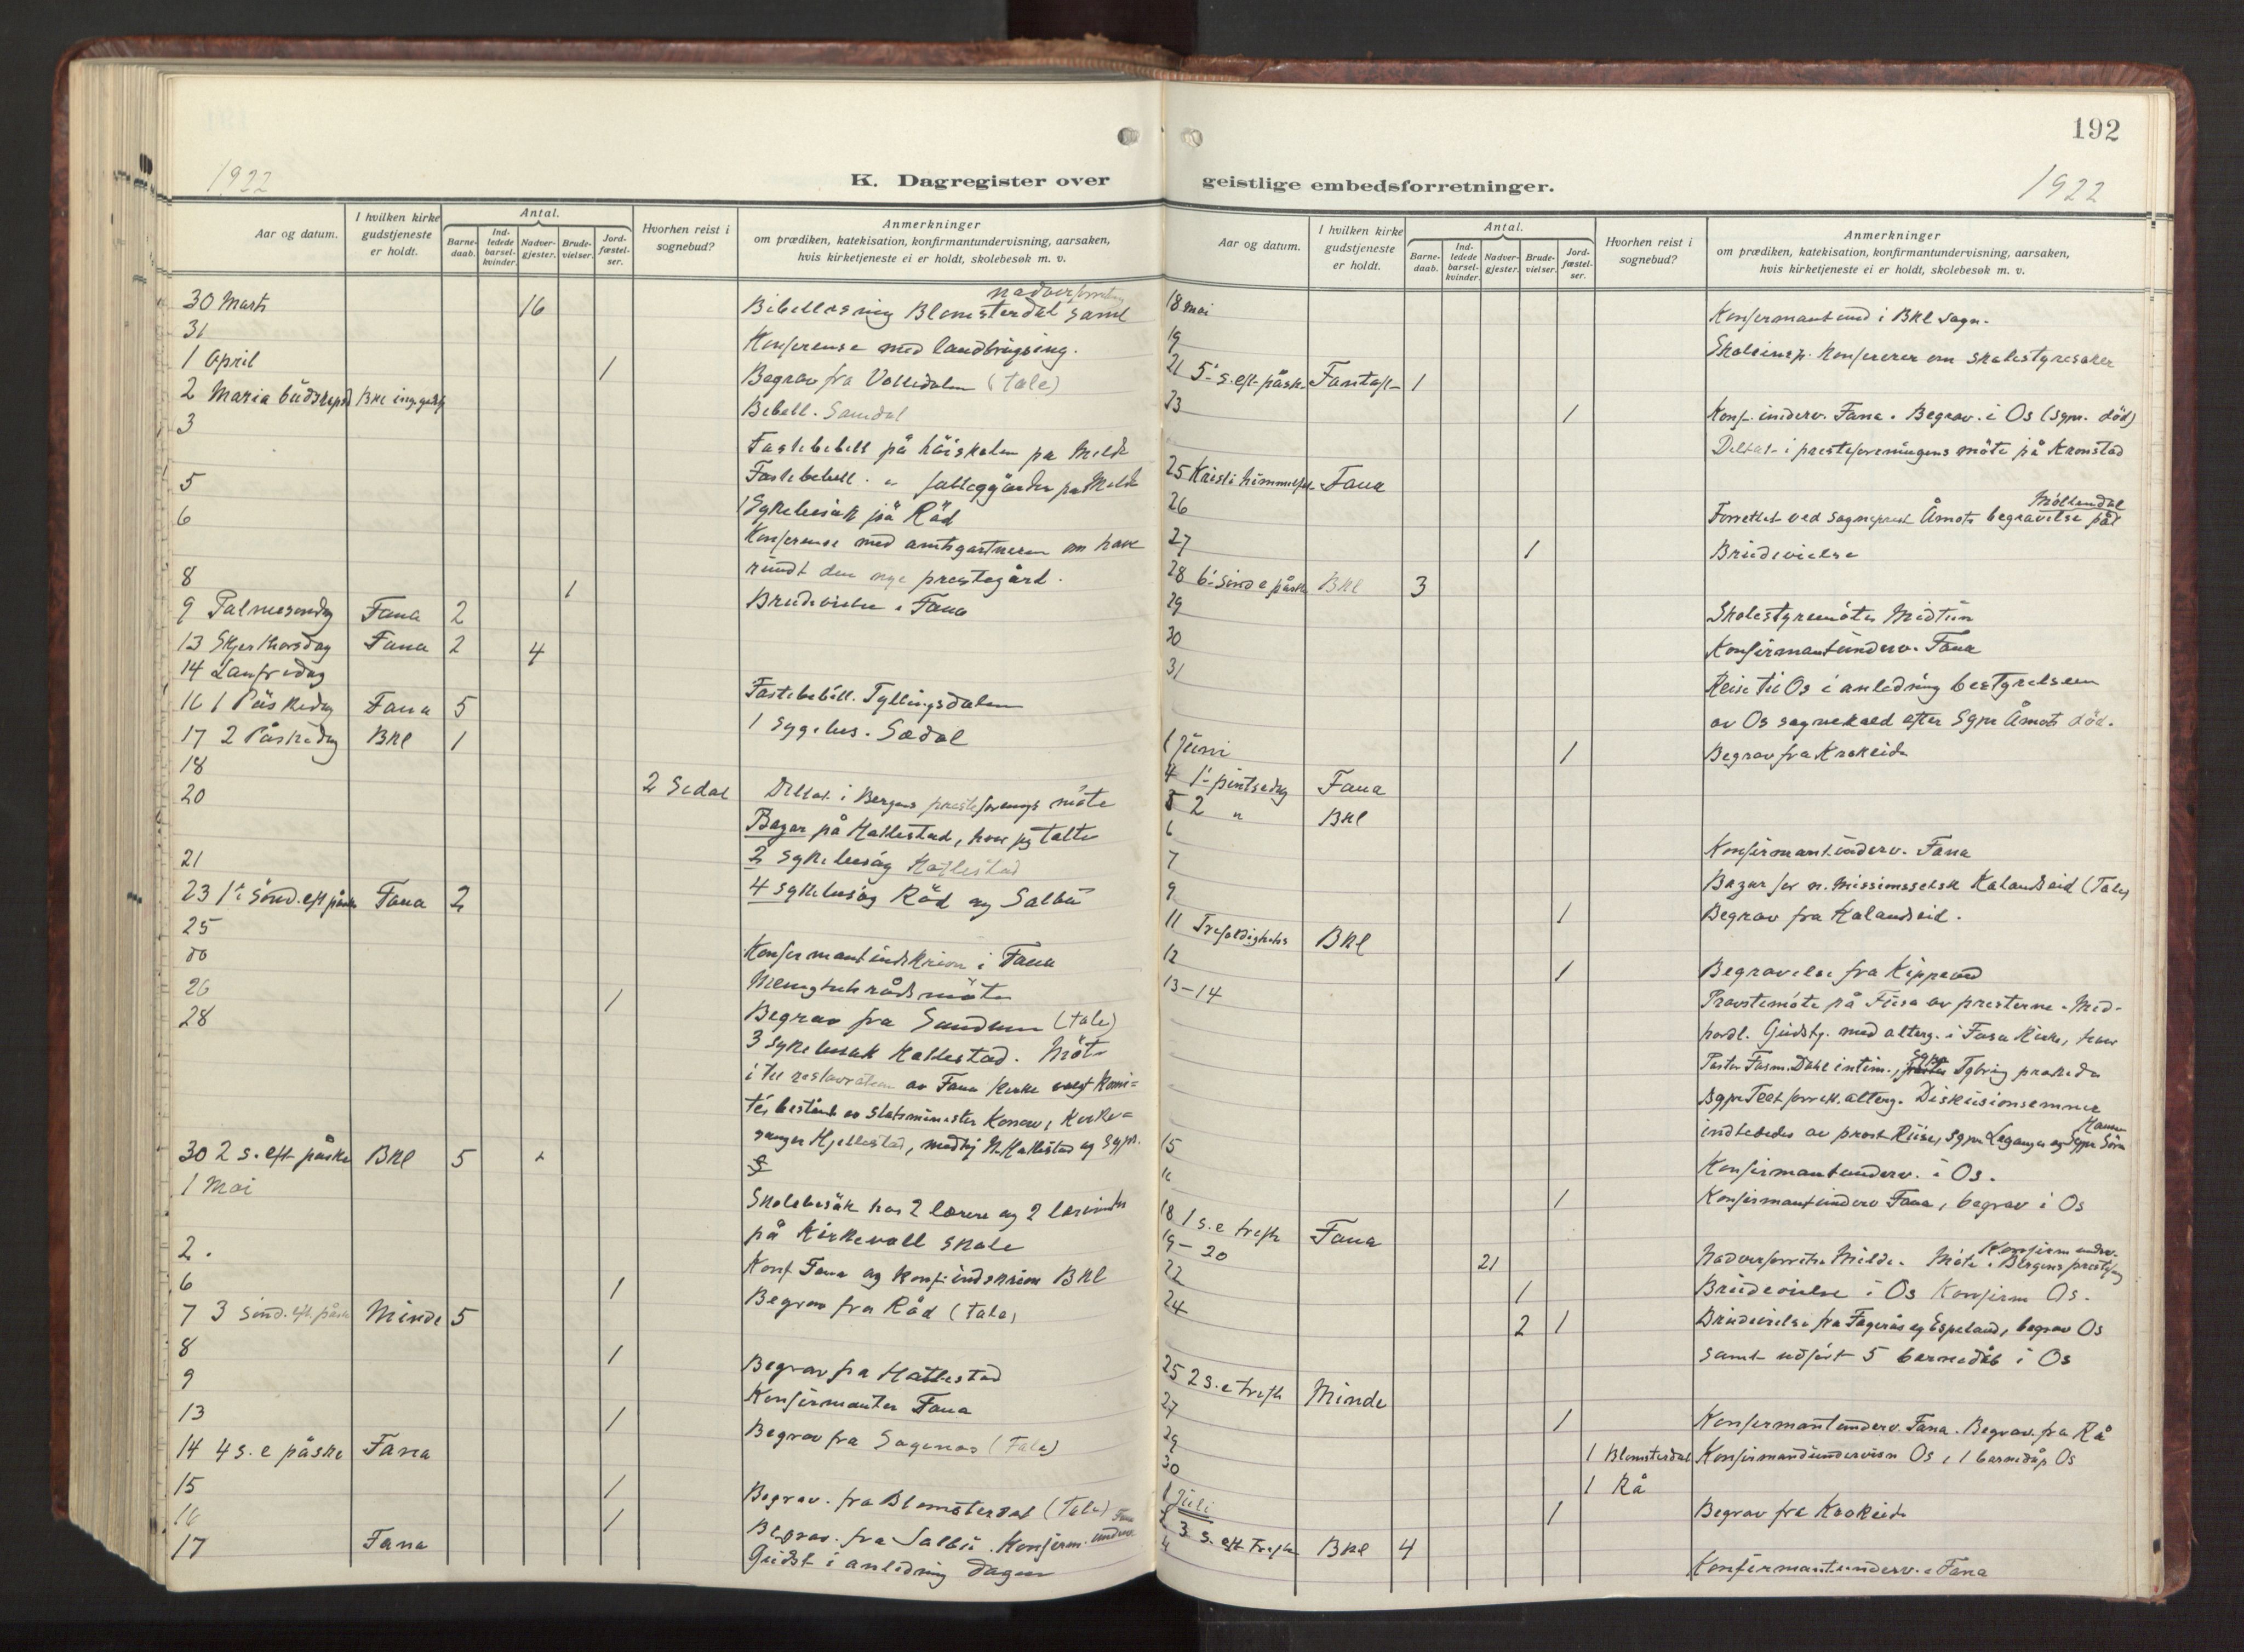 192
1922
1922
K. Dagregister over geistlige embedsforretninger.
Aar og datum.
I hvilken kirke gudstjeneste er holdt.
Antal.
Barnedaab.
Indledede barselkvinder.
Nadvergjester.
Brudevielser.
Jordfæstelser.
Hvorhen reist i sognebud?
Anmerkninger
om prædiken, katekisation, konfirmantundervisning, aarsaken,
hvis kirketjeneste ei er holdt, skolebesøk m. v.
30 Marts 16 Bibellesning Blomsterdal samt
31 Konferense med
1 April 1 Begrav fra (tale)
2 Maria Bkl
3 Bibell.
Fastebibell på höiskolen på Milde
5 Fastebibell. på Milde
6 Sykebesök på Råd
Konferense med amtsgartneren om have
rundt den nye prestegård.
8 1 Brudevielse i Fana
9 Palmesöndag Fana 2
13 Skjærthorsdag Fana 2 4
14 Langfredag
16 1 Påskedag Fana 5 Fastebibell.
17 2 Påskedag Bkl 1 1 Sygebes. Sædal
18
20 2 Sedal Deltat i Bergens presteforenings möte
Bazar på Hatlestad, hvor jeg talte
21 2 sykebesög Hatlestad
23 1ste Sönd. eft påske Fana 2 4 sykebesög Råd og Salbu
25
Konfirmantindskrivn i Fana
26 Menighetsrådsmöte
28 1 Begrav fra (tale)
3 sykebesök Hatlestad. Möte
i til restavration av Fana kirke valgt komi-
té bestående av statsminister Konow, Kirke-
sanger Hjellestad,
30 2 s. eft påske Bkl 5
1 Mai Skolebesök hos 2 lærere og 2 lærerinder
på Kirkevoll skole
2. Konf Fana og konf. indskrivn Bkl
6 1 Begrav fra Råd (tale)
7 3 sönd. eft. påske Minde 5
8 1 Begrav fra Hatlestad
9 Konfirmanter Fana
13 1 Begrav fra (Tale)
14 4 s. e påske Fana
15 1 Begrav. fra Blomsterdal (Tale)
16 1 Begrav. fra Salbu. Konfirm. underv.
17 Fana Gudst i anledning dagen
K. Dagregister over geistlige embedsforretninger.
Aar og datum.
I hvilken kirke gudstjeneste er holdt.
Antal.
Barnedaab.
Indledede barselkvinder.
Nadvergjester.
Brudevielser.
Jordfæstelser.
Hvorhen reist i sognebud?
Anmerkninger
om prædiken, katekisation, konfirmantundervisning, aarsaken,
hvis kirketjeneste ei er holdt, skolebesøk m. v.
18 mai Konfirmant und i Bkl sogn.
19 Skoleinsp. konfererer om skolestyresaker
21 5te s. eft. påske Fantoft 1
23 1 Konf. underv. Fana. Begrav. i Os (sgpr. död)
Deltat i presteforeningens möte på Kronstad
25 Kristi himmelf. Fana
26 Forrettet ved sogneprest Åmots begravelse på Möllendal
27 1 Brudevielse
28 6te sönd e påske Bkl 3
29 Skolestyremöte Midtun
30 Konfirmantunderv. Fana
31 Reise til Os i anledning bestyrelsen
av Os sognekald efter Sgpr Åmots död.
1 Juni 1 Begrav fra Krokeide
4 1ste pintsedag Fana
5 2 " Bkl
6 Konfirmant underv. Fana
7 Bazar for n. missionsselsk Kalandseid (Tale)
9 1 Begrav fra Kalandseid.
11 Trefoldighets Bkl
12 1 Begravelse fra
13-14 Provstemöte på Fusa av presterne i Mid-
hordl. Gudstj. med alterg. i Fusa kirke, hvor
Dahl intim., Sgpr præken
alterg. Diskusionsemner
indlededes av prost Riise, sgpr Leganger og
15 Konfirmantunderv. i Os.
16 1 Konfirmantunderv Fana, begrav i Os
18 1 s. e trefh Fana
19-20 21 Milde. Möte i Bergens prestef. Konfirm underv.
22 1 Brudevielse i Os Konfirm Os.
24 2 1 Brudevielse fra Fagerås og Espeland, begrav Os
samt udfört 5 barnedåb i Os
25 2 s. e trefh Minde
27 1 Konfirmantunderv. Fana. Begrav. fra Rå
29 1 Blomsterdal Konfirmandundervisn Os, 1 barnedåp Os
30 1 Rå
1 Juli 1 Begrav fra Krokeide
2 3 s. eft Trefh Bkl 4
4 Konfirmantunderv. i Fana